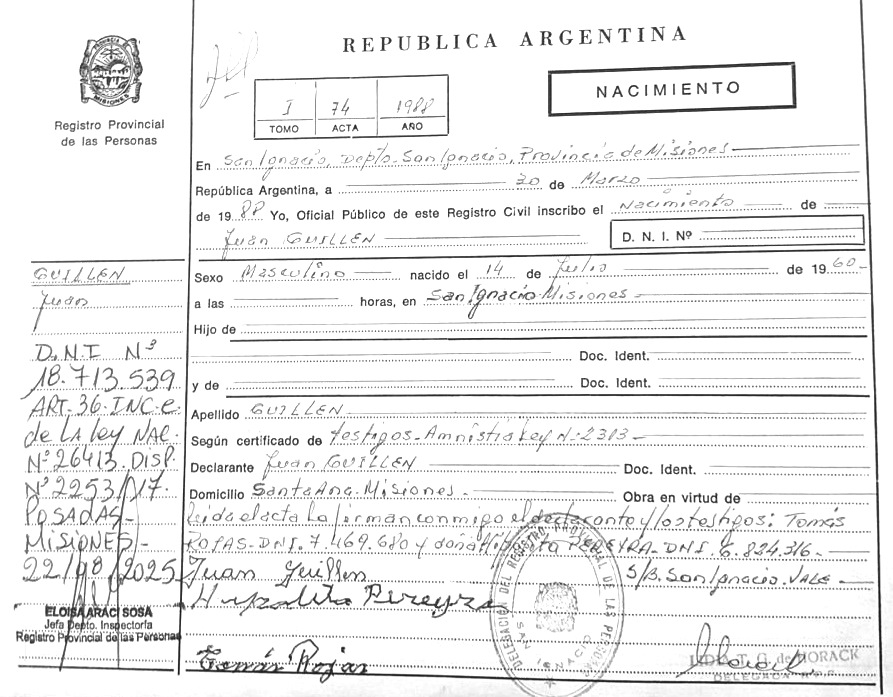 REPUBLICA ARGENTINA
PROVINCIA DE MISIONES
Registro Provincial
de las Personas
I 74 1988
TOMO ACTA AÑO
NACIMIENTO
En San Ignacio, Depto. San Ignacio, Provincia de Misiones
República Argentina, a 30 de Marzo
de 1988 Yo, Oficial Público de este Registro Civil inscribo el nacimiento de
Juan GUILLEN
D. N. I. Nº
Sexo Masculino nacido el 14 de Julio de 1960-
a las horas, en San Ignacio-Misiones-
Hijo de
Doc. Ident.
y de Doc. Ident.
Apellido GUILLEN
Según certificado de testigos-Amnistia Ley Nº 2313-
Declarante Juan GUILLEN Doc. Ident.
Domicilio Santa Ana-Misiones- Obra en virtud de
Leida el acta la firman conmigo el declarante y los testigos: Tomás
ROJAS-DNI.7.469.680 y doña PEREYRA-DNI.6.824.316-
S/B. San Ignacio. VALE-
Juan Guillen
Hipolita Pereyra
Tomás Rojas
GUILLEN
Juan
D.N.I Nº
18.713.539
ART-36-INC.c.
de LA ley NAC.
Nº 26413.DISP.
Nº 2253/17.
POSADAS-
MISIONES-
22/08/2025
ELOISA ARACI SOSA
Jefa Dpto. Inspectoría
Registro Provincial de las Personas
DELEGACION DEL REGISTRO PROVINCIAL DE LAS PERSONAS
SAN IGNACIO
T. G. de HORACK
DELEGADA